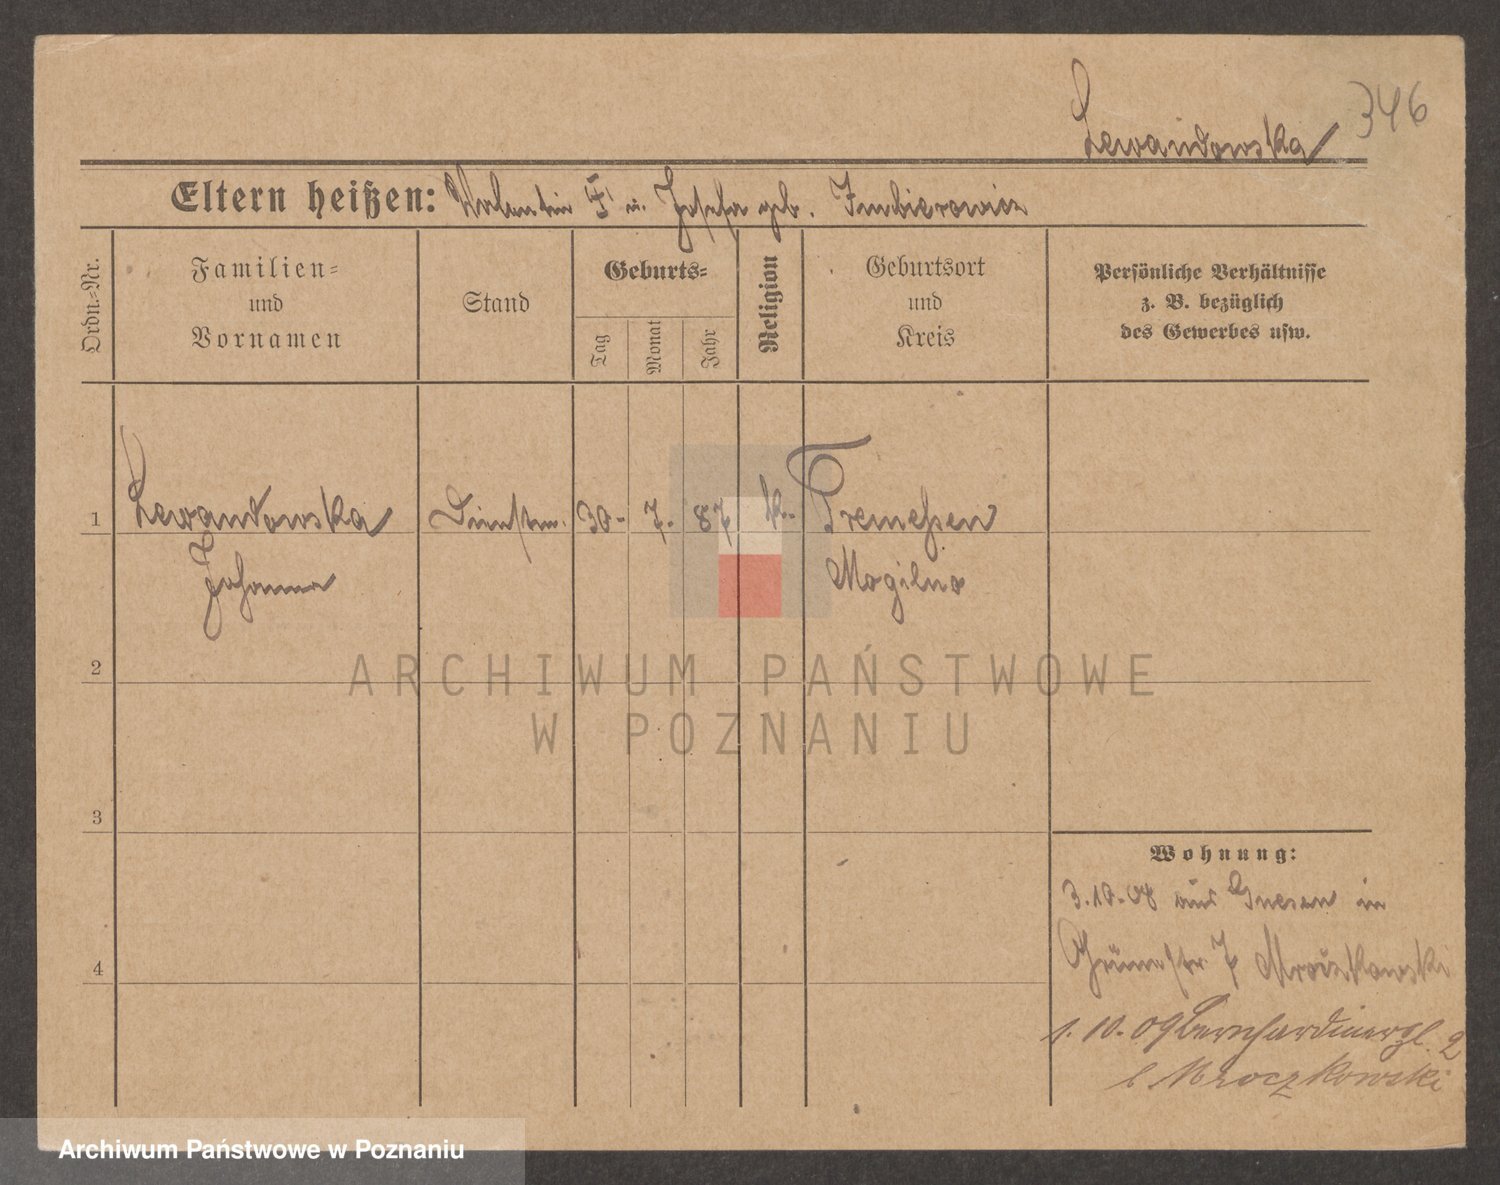 346
Lewandowska
Eltern heißen: Valentin F u. Josefa geb. Imbierowicz
Ordn.=Nr.
Familien=
und
Vornamen
Stand
Geburts=
Tag
Monat
Jahr
Religion
Geburtsort
und
Kreis
Persönliche Verhältnisse
z. B. bezüglich
des Gewerbes usw.
1 Lewandowska Dienstm. 30. 7. 87 k. Tremessen
Johanna Mogilno
2
3
4
Wohnung:
3.10.08 aus Gnesen in
Grünestr 7 Mroczkowski
1. 10. 09 Bernhardinerpl. 2
b Mroczkowski
ARCHIWUM PAŃSTWOWE
W POZNANIU
Archiwum Państwowe w Poznaniu